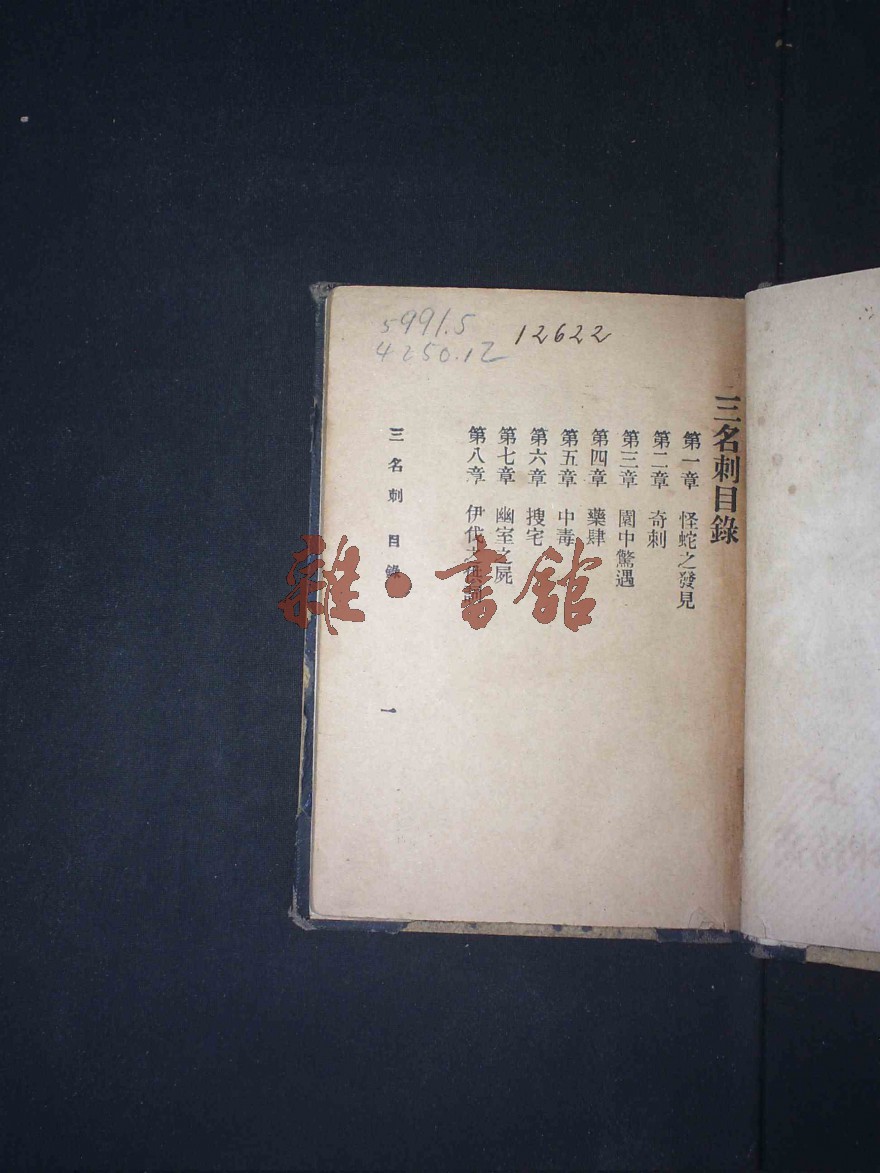 5991.5
4250.12
12622
三名刺目錄
第一章 怪蛇之發見
第二章 奇刺
第三章 園中驚遇
第四章 藥肆
第五章 中毒
第六章 搜宅
第七章 幽室之屍
第八章 伊代之供詞
三名刺 目錄
一
雜·書館